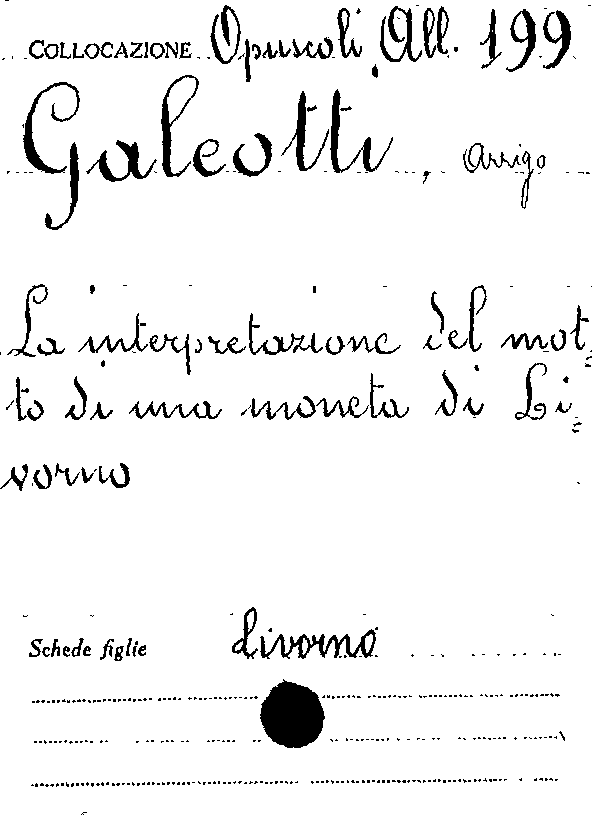 COLLOCAZIONE Opuscoli, All. 199
Galeotti, Arrigo
La interpretazione del mot=
to di una moneta di Li=
vorno
Schede figlie Livorno